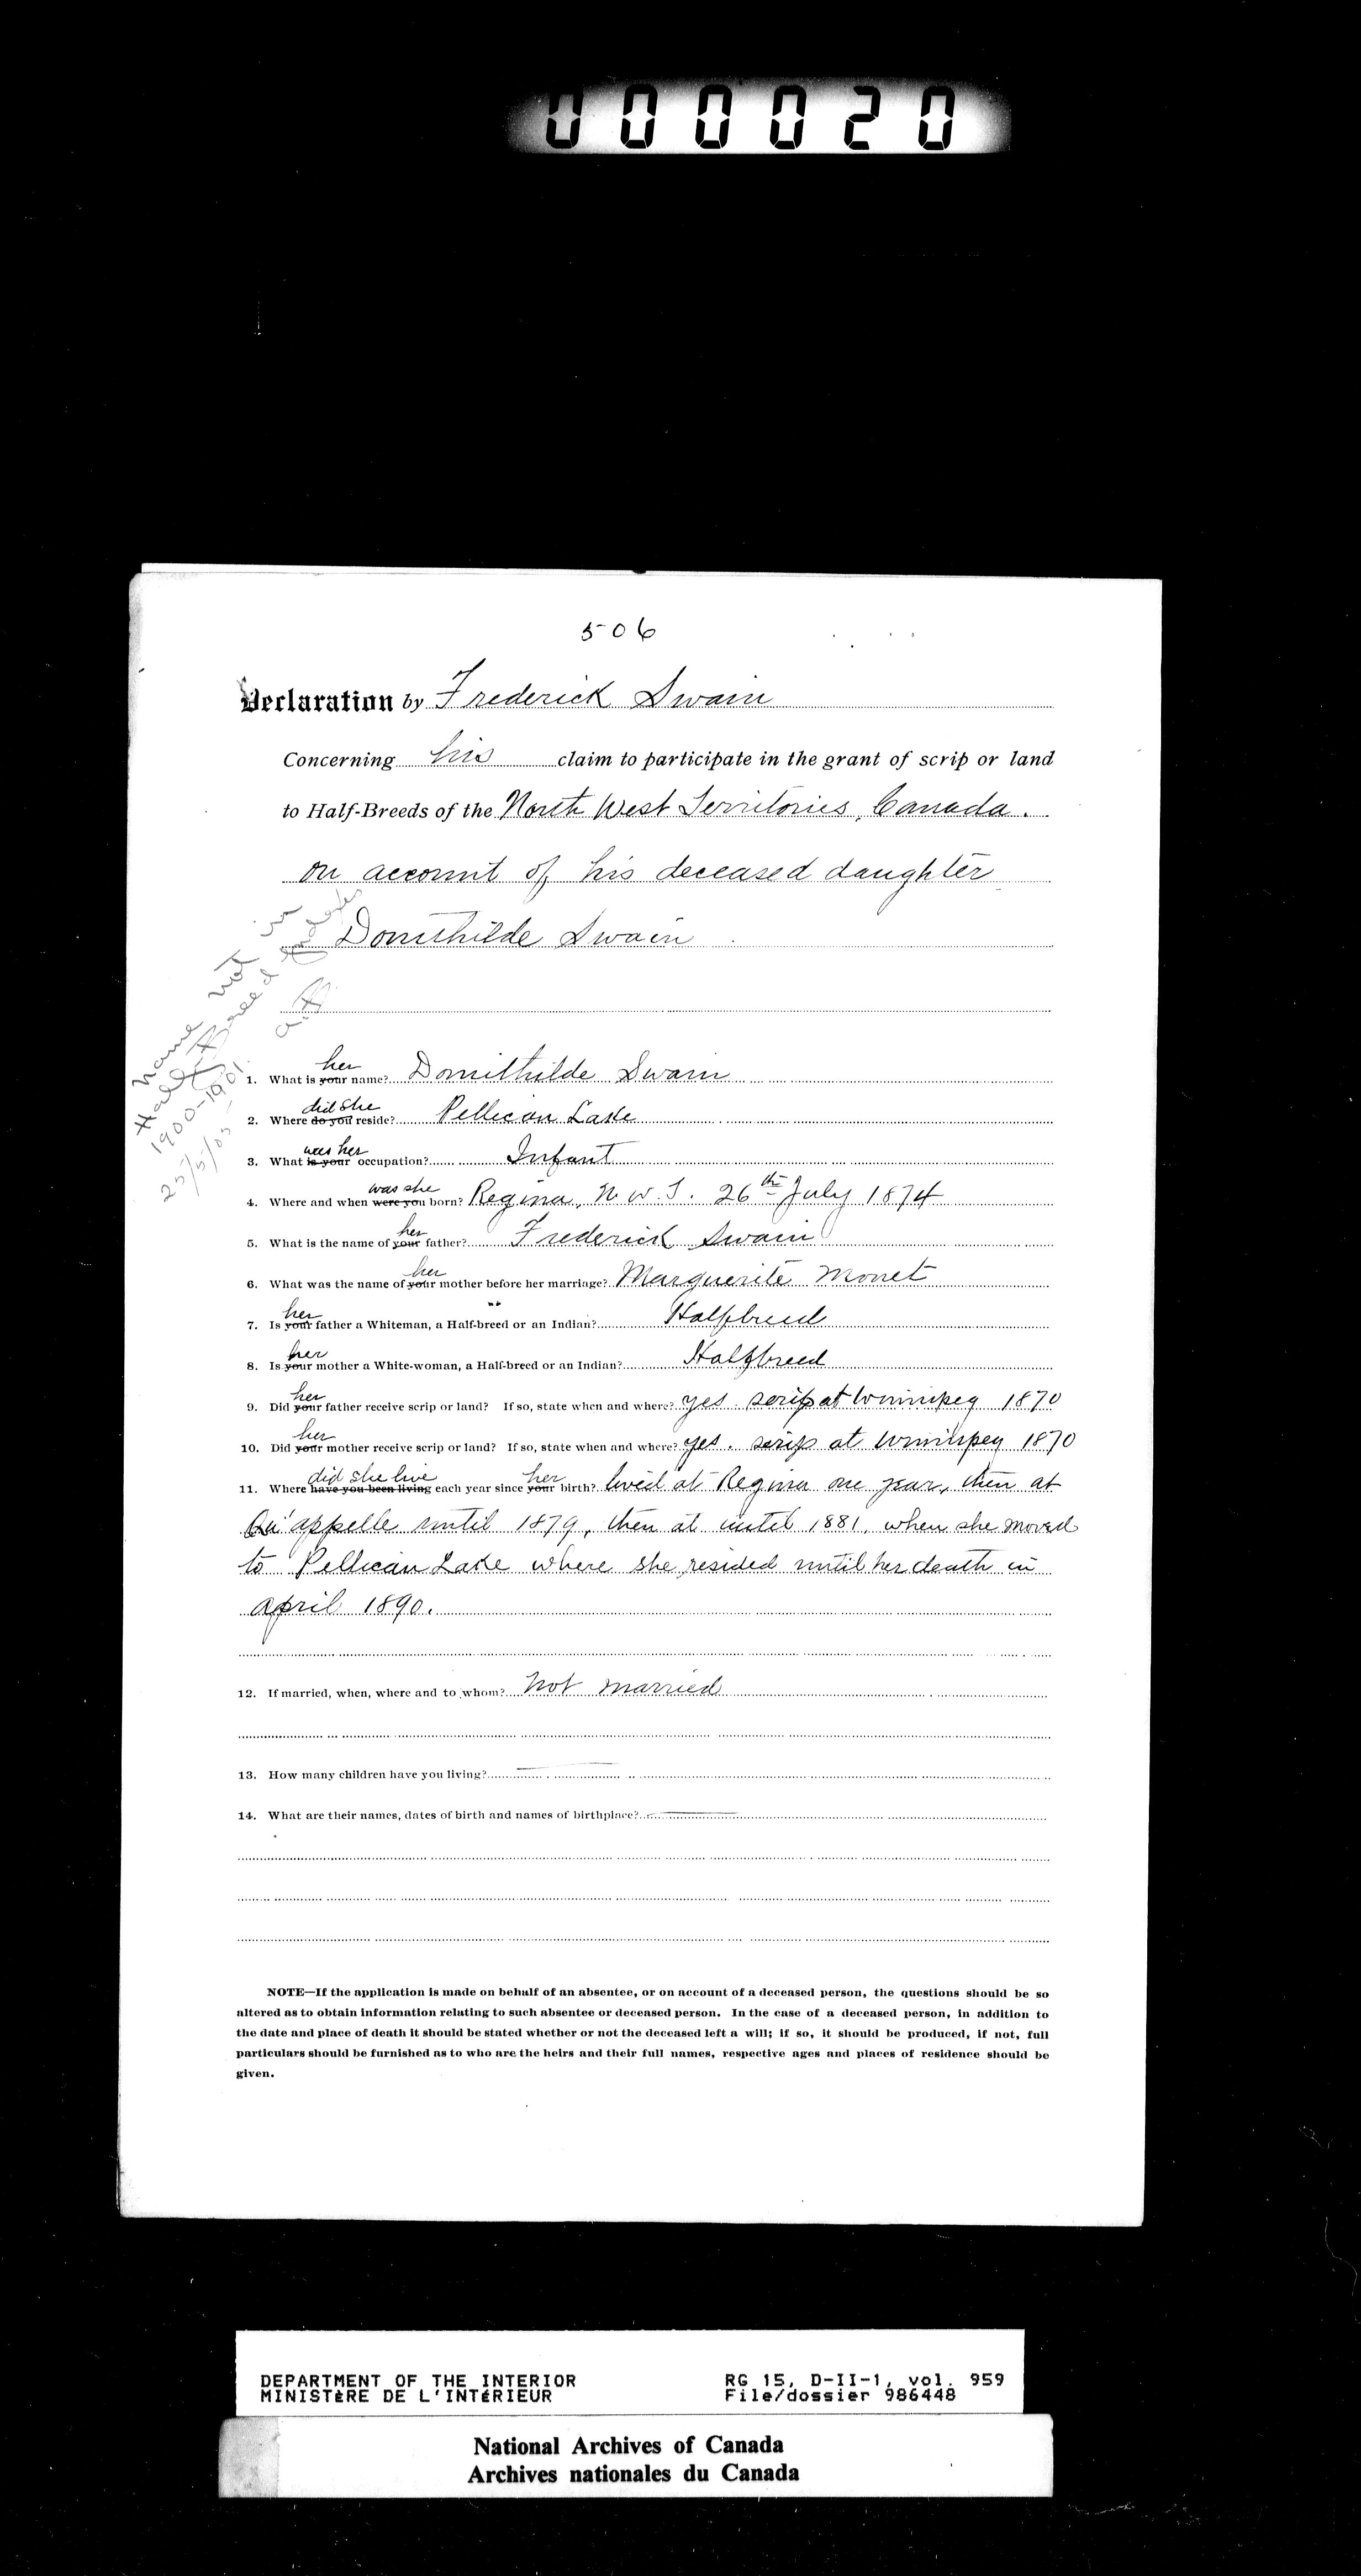 000020
506
Declaration by Frederick Swain
Concerning his claim to participate in the grant of scrip or land
to Half-Breeds of the North West Territories, Canada.
on account of his deceased daughter
Domithilde Swain
Name not in
Half Breed Index
1900-1901
25/5/05
1. What is your her name? Domithilde Swain
2. Where do you did she reside? Pellican Lake
3. What is your was her occupation? Infant
4. Where and when were you was she born? Regina, N.W.T. 26th July 1874
5. What is the name of your her father? Frederick Swain
6. What was the name of your her mother before her marriage? Marguerite Monet
7. Is your her father a Whiteman, a Half-breed or an Indian? Halfbreed
8. Is your her mother a White-woman, a Half-breed or an Indian? Halfbreed
9. Did your her father receive scrip or land? If so, state when and where? yes. scrip at Winnipeg 1870
10. Did your her mother receive scrip or land? If so, state when and where? yes. scrip at Winnipeg 1870
11. Where have you been living did she live each year since your her birth? lived at Regina one year, then at
Qu'appelle until 1879, then at until 1881, when she moved
to Pellican Lake where she resided until her death in
april 1890.
12. If married, when, where and to whom? Not married
13. How many children have you living?
14. What are their names, dates of birth and names of birthplace?
NOTE—If the application is made on behalf of an absentee, or on account of a deceased person, the questions should be so
altered as to obtain information relating to such absentee or deceased person. In the case of a deceased person, in addition to
the date and place of death it should be stated whether or not the deceased left a will; if so, it should be produced, if not, full
particulars should be furnished as to who are the heirs and their full names, respective ages and places of residence should be
given.
DEPARTMENT OF THE INTERIOR RG 15, D-II-1, vol. 959
MINISTÈRE DE L'INTÉRIEUR File/dossier 986448
National Archives of Canada
Archives nationales du Canada